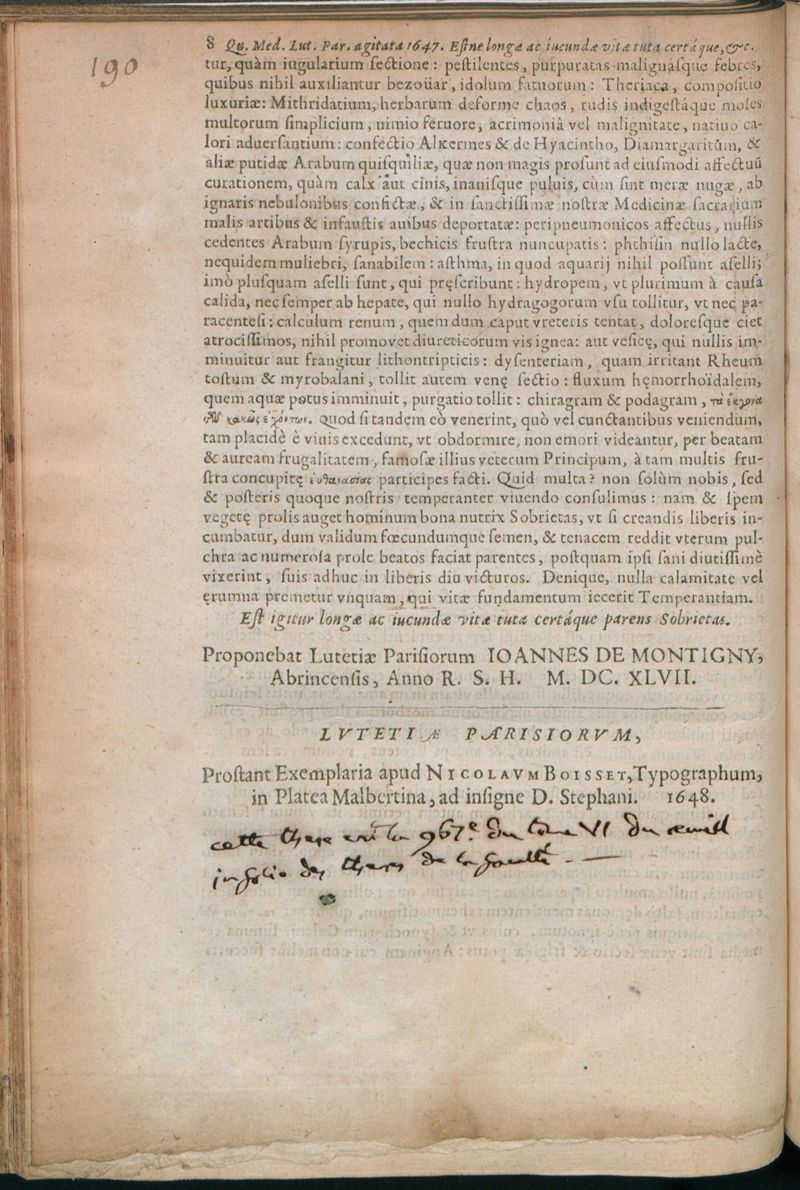 190
8 Qu. Med. Lut. Par. agitata 1647. Eſtne longæ ac iucundæ vitæ tuta certáque, &c.
tur, quàm iugularium ſectione : peſtilentes, purpuratas malignáſque febres,
quibus nihil auxiliantur bezoüar, idolum fatuorum : Theriaca, compoſitio
luxuriæ: Mithridatium, herbarum deforme chaos, rudis indigeſtáque moles
multorum ſimplicium, nimio feruore, acrimoniâ vel malignitate, natiuo ca-
lori aduerſantium : confectio Alkermes & de Hyacintho, Diamargaritûm, &
aliæ putidæ Arabum quiſquiliæ, quæ non magis proſunt ad eiuſmodi affectuũ
curationem, quàm calx aut cinis, inaniſque puluis, cùm ſint meræ nugæ, ab
ignaris nebulonibus confictæ, & in ſanctiſſimæ noſtræ Medicinæ ſacrarium
malis artibus & infauſtis auibus deportatæ: peripneumonicos affectus, nullis
cedentes Arabum ſyrupis, bechicis fruſtra nuncupatis : phthiſin nullo lacte,
nequidem muliebri, ſanabilem : aſthma, in quod aquarij nihil poſſunt aſelli;
imò pluſquam aſelli ſunt, qui pręſcribunt : hydropem, vt plurimum à cauſa
calida, nec ſemper ab hepate, qui nullo hydragogorum vſu tollitur, vt nec pa-
racenteſi : calculum renum, quem dum caput vreteris tentat, doloreſque ciet
atrociſſimos, nihil promovet diureticorum vis ignea: aut veſicę, qui nullis im-
minuitur aut frangitur lithontripticis : dyſenteriam, quam irritant Rheum
toſtum & myrobalani, tollit autem venę ſectio : fluxum hęmorrhoïdalem,
quem aquæ potus imminuit, purgatio tollit : chiragram & podagram, τὰ ἔκγονα
κακῶς ἐχόντων. Quod ſi tandem eò venerint, quò vel cunctantibus veniendum,
tam placidè è viuis excedunt, vt obdormire, non emori videantur, per beatam
& auream frugalitatem, famoſæ illius veterum Principum, à tam multis fru-
ſtra concupitę εὐθανασίας participes facti. Quid multa? non ſolùm nobis, ſed
& poſteris quoque noſtris temperanter viuendo conſulimus : nam & ſpem
vegetę prolis auget hominum bona nutrix Sobrietas, vt ſi creandis liberis in-
cumbatur, dum validum fœcundumque ſemen, & tenacem reddit vterum pul-
chra ac numeroſa prole beatos faciat parentes, poſtquam ipſi ſani diutiſſimè
vixerint, ſuis adhuc in liberis diu victuros. Denique, nulla calamitate vel
ęrumna premetur vnquam, qui vitæ fundamentum iecerit Temperantiam.
Eſt igitur longæ ac iucundæ vitæ tuta certáque parens Sobrietas.
Proponebat Lutetiæ Pariſiorum IOANNES DE MONTIGNY,
Abrincenſis, Anno R. S. H. M. DC. XLVII.
LVTETIÆ PARISIORVM,
Proſtant Exemplaria apud NICOLAVM BOISSET, Typographum,
in Platea Malbertina, ad inſigne D. Stephani. 1648.
cette these est la 967e du tome VI du recueil
in folio des theses de la faculté. —